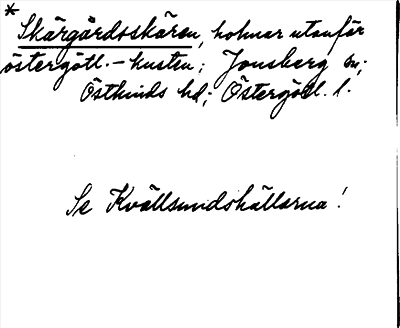 * Skärgårdsskären, holmar utanför
östergötl.-kusten; Jonsberg sn;
Östkinds hd; Östergötl. l.
Se Kvällsundshällarna!